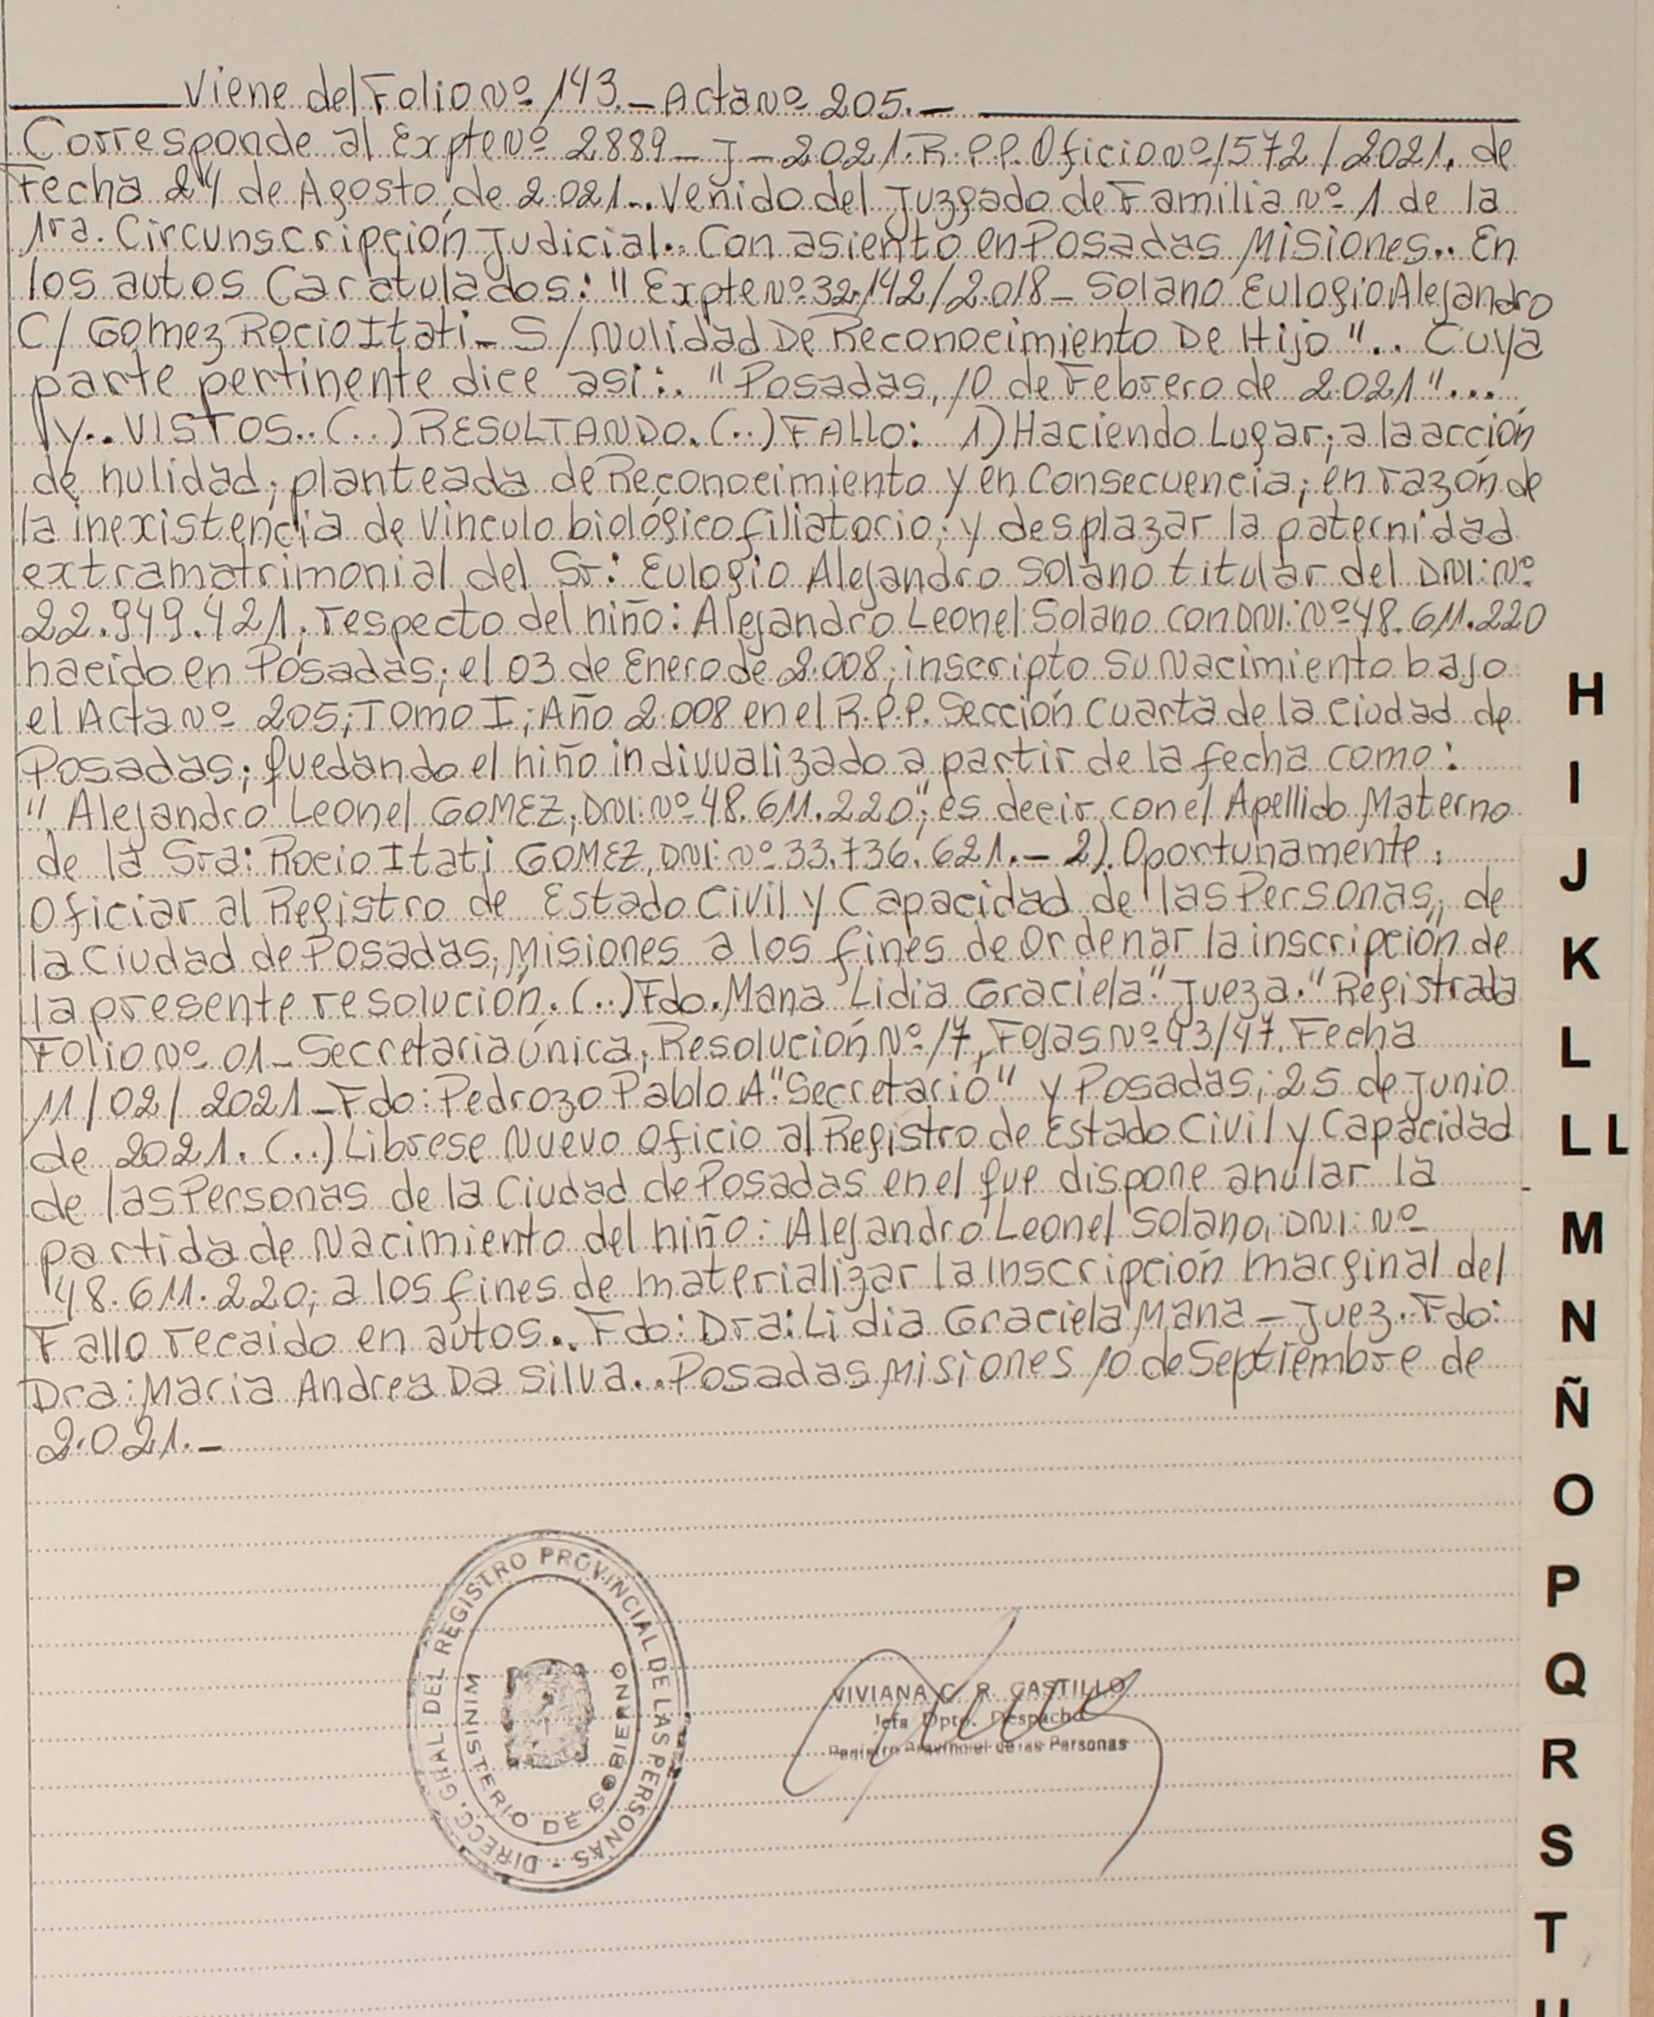 Viene del Folio Nº 143.- Acta Nº 205.-
Corresponde al Expte Nº 2889-J-2021.R.P.P. Oficio Nº 1572/2021. de
Fecha 24 de Agosto, de 2.021... Venido del Juzgado de Familia Nº 1 de la
1ra. Circunscripción Judicial.. Con asiento en Posadas Misiones.. En
los autos Caratulados: "Expte Nº 32.142/2.018- Solano Eulogio Alejandro
C/ Gomez Rocio Itati- S/ Nulidad De Reconocimiento De Hijo".. Cuya
parte pertinente dice así:. "Posadas, 10 de Febrero de 2.021"...
y.. VISTOS..(..) RESULTANDO.(..) FALLO: 1) Haciendo Lugar; a la acción
de nulidad; planteada de Reconocimiento y en Consecuencia; en razón de
la inexistencia de Vinculo biológico filiatorio; y desplazar la paternidad
extramatrimonial del Sr: Eulogio Alejandro Solano titular del DNI: Nº
22.949.421; respecto del niño: Alejandro Leonel Solano con DNI: Nº 48.611.220
nacido en Posadas; el 03 de Enero de 2.008; inscripto Su Nacimiento bajo
el Acta Nº 205; Tomo I; Año 2.008 en el R.P.P. Sección Cuarta de la Ciudad de
Posadas; quedando el niño indivualizado a partir de la fecha como:
"Alejandro Leonel GOMEZ; DNI: Nº 48.611.220"; es decir con el Apellido Materno
de la Sra: Rocio Itati GOMEZ, DNI: Nº 33.736.621.- 2) Oportunamente:
Oficiar al Registro de Estado Civil y Capacidad de las Personas, de
la Ciudad de Posadas, Misiones a los fines de Ordenar la inscripción de
la presente resolución. (..) Fdo. Mana Lidia Graciela "Jueza." Registrada
Folio Nº 01- Secretaria Única; Resolución Nº 17, Fojas Nº 93/97. Fecha
11/02/2021- Fdo: Pedrozo Pablo A. "Secretario" y Posadas; 25 de Junio
de 2021. (..) Librese Nuevo Oficio al Registro de Estado Civil y Capacidad
de las Personas de la Ciudad de Posadas en el que dispone anular la
partida de Nacimiento del niño: Alejandro Leonel Solano; DNI: Nº
48.611.220; a los fines de materializar la Inscripción marginal del
Fallo recaido en autos.. Fdo: Dra: Lidia Graciela Mana - Juez. Fdo:
Dra: Maria Andrea Da Silva... Posadas Misiones 10 de Septiembre de
2.021.-
DIRECC. GRAL. DEL REGISTRO PROVINCIAL DE LAS PERSONAS -
MINISTERIO DE GOBIERNO
VIVIANA C. R. CASTILLO
Jefa Dpto. Despacho
Registro Provincial de las Personas
H
I
J
K
L
LL
M
N
Ñ
O
P
Q
R
S
T
U